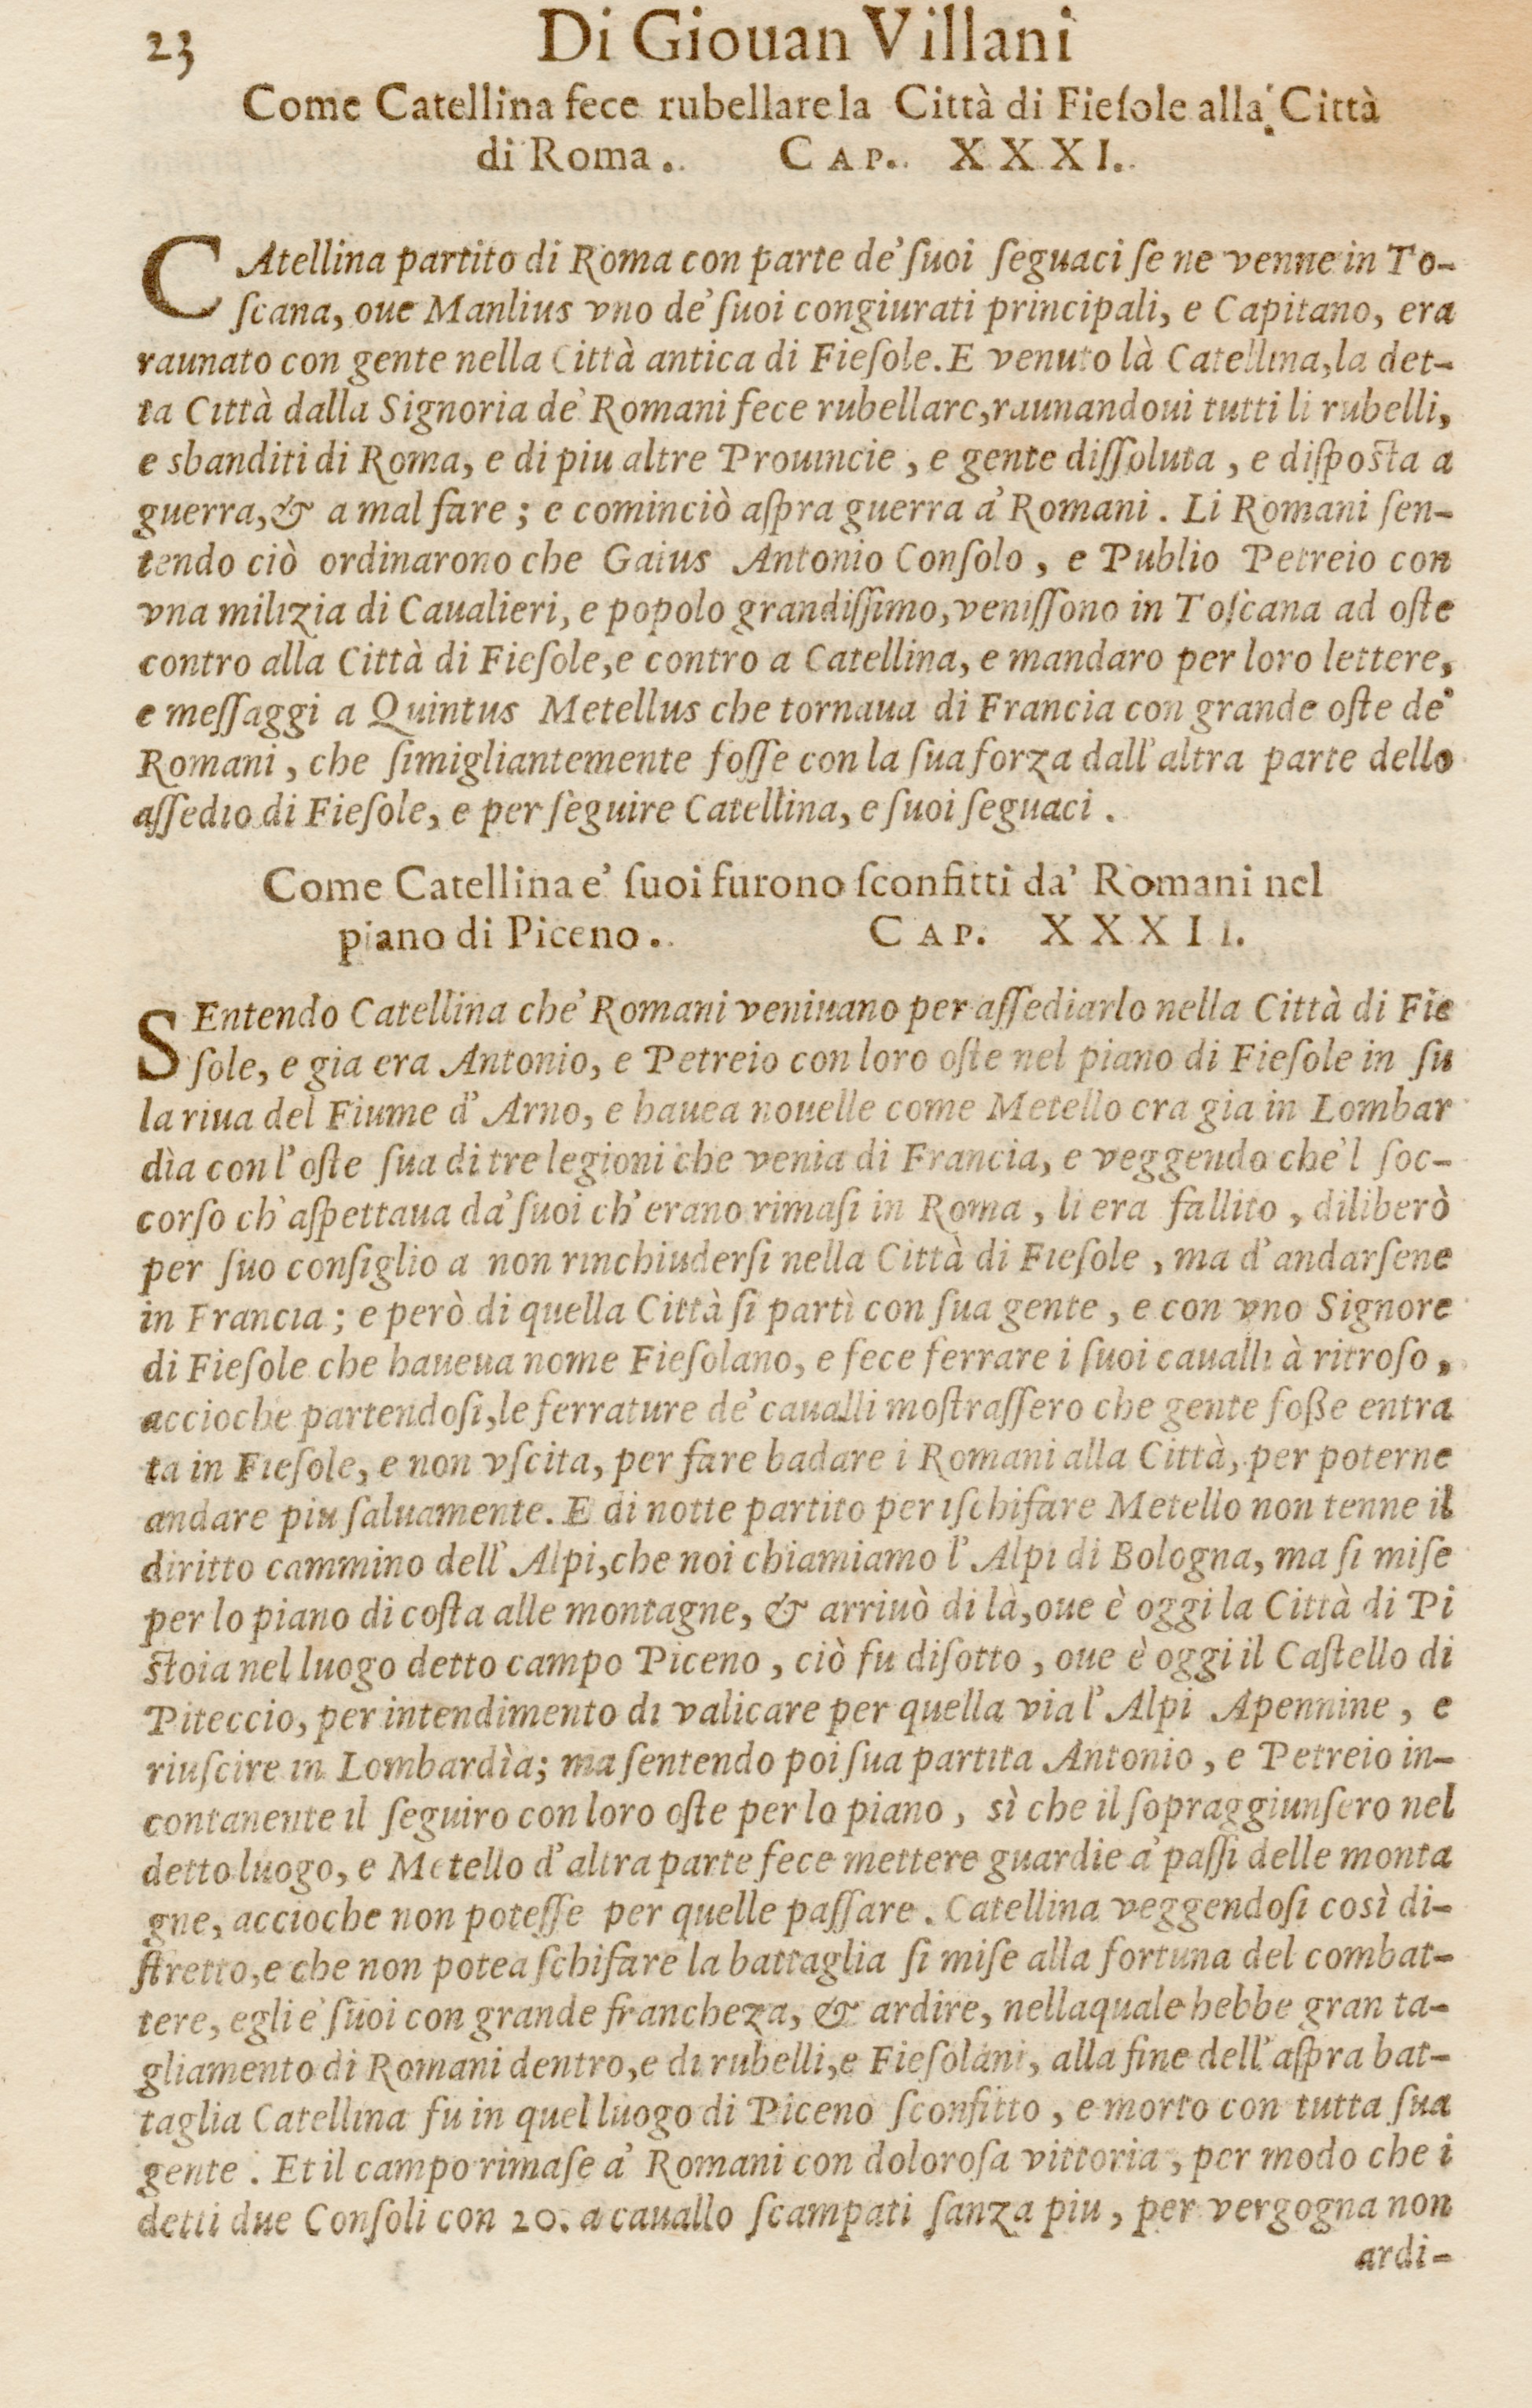 23 Di Giouan Villani
Come Catellina fece rubellare la Città di Fieſole alla Città
di Roma. CAP. XXXI.
CAtellina partito di Roma con parte de' ſuoi ſeguaci ſe ne venne in To-
ſcana, oue Manlius vno de' ſuoi congiurati principali, e Capitano, era
raunato con gente nella Città antica di Fieſole. E venuto là Catellina, la det-
ta Città dalla Signoria de' Romani fece rubellare, raunandoui tutti li rubelli,
e sbanditi di Roma, e di piu altre Prouincie, e gente diſſoluta, e diſpoſta a
guerra, & a mal fare; e cominciò aſpra guerra a' Romani. Li Romani ſen-
tendo ciò ordinarono che Gaius Antonio Conſolo, e Publio Petreio con
vna milizia di Caualieri, e popolo grandiſſimo, veniſſono in Toſcana ad oſte
contro alla Città di Fieſole, e contro a Catellina, e mandaro per loro lettere,
e meſſaggi a Quintus Metellus che tornaua di Francia con grande oſte de'
Romani, che ſimigliantemente foſſe con la ſua forza dall'altra parte dello
aſſedio di Fieſole, e per ſeguire Catellina, e ſuoi ſeguaci.
Come Catellina e' ſuoi furono ſconfitti da' Romani nel
piano di Piceno. CAP. XXXII.
SEntendo Catellina che' Romani veniuano per aſſediarlo nella Città di Fie
ſole, e gia era Antonio, e Petreio con loro oſte nel piano di Fieſole in ſu
la riua del Fiume d'Arno, e hauea nouelle come Metello era gia in Lombar
dìa con l'oſte ſua di tre legioni che venia di Francia, e veggendo che'l ſoc-
corſo ch'aſpettaua da' ſuoi ch'erano rimaſi in Roma, li era fallito, diliberò
per ſuo conſiglio a non rinchiuderſi nella Città di Fieſole, ma d'andarſene
in Francia; e però di quella Città ſi partì con ſua gente, e con vno Signore
di Fieſole che haueua nome Fieſolano, e fece ferrare i ſuoi caualli à ritroſo,
accioche partendoſi, le ferrature de' caualli moſtraſſero che gente foße entra
ta in Fieſole, e non vſcita, per fare badare i Romani alla Città, per poterne
andare piu ſaluamente. E di notte partito per iſchifare Metello non tenne il
diritto cammino dell'Alpi, che noi chiamiamo l'Alpi di Bologna, ma ſi miſe
per lo piano di coſta alle montagne, & arriuò di là, oue è oggi la Città di Pi
ſtoia nel luogo detto campo Piceno, ciò fu diſotto, oue è oggi il Caſtello di
Piteccio, per intendimento di valicare per quella via l'Alpi Apennine, e
riuſcire in Lombardìa; ma ſentendo poi ſua partita Antonio, e Petreio in-
contanente il ſeguiro con loro oſte per lo piano, sì che il ſopraggiunſero nel
detto luogo, e Metello d'altra parte fece mettere guardie a' paſſi delle monta
gne, accioche non poteſſe per quelle paſſare. Catellina veggendoſi così di-
ſtretto, e che non potea ſchifare la battaglia ſi miſe alla fortuna del combat-
tere, egli e' ſuoi con grande francheza, & ardire, nellaquale hebbe gran ta-
gliamento di Romani dentro, e di rubelli, e Fieſolani, alla fine dell'aſpra bat-
taglia Catellina fu in quel luogo di Piceno ſconfitto, e morto con tutta ſua
gente. Et il campo rimaſe a' Romani con doloroſa vittoria, per modo che i
detti due Conſoli con 20. a cauallo ſcampati ſanza piu, per vergogna non
ardi-